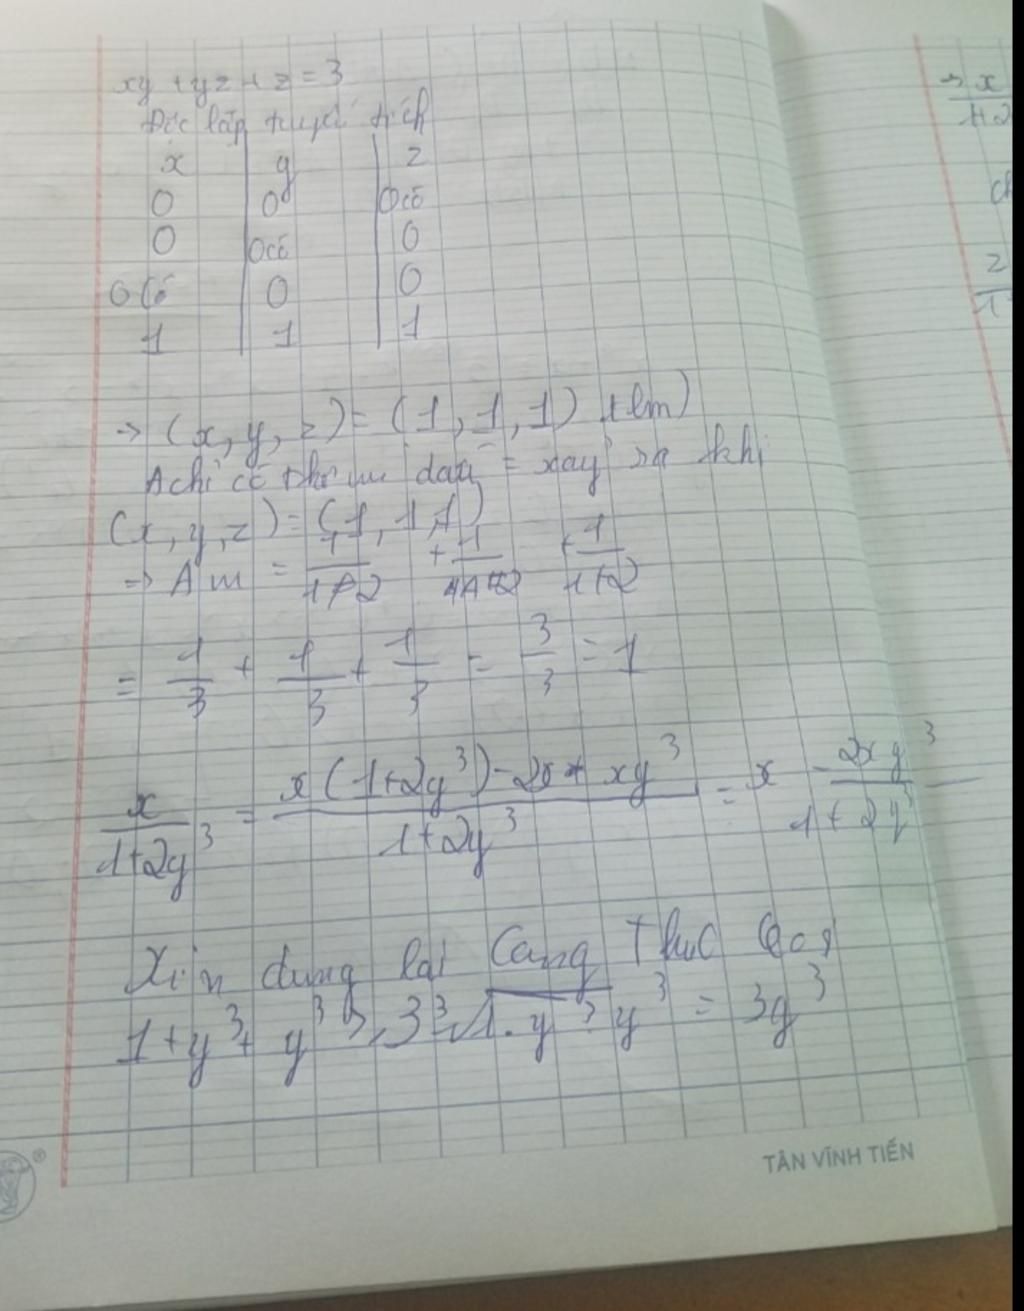 xy + yz + z = 3
Độc lập tuyệt tích
x | y | z
0 | 0 | 0 có
0 | 0 có | 0
0 Có | 0 | 0
1 | 1 | 1
→ (x, y, z) = (1, 1, 1) tlm)
A chỉ có dấu = xảy ra khi
(x, y, z) = (1, 1, 1)
→ A m = 1/(1+2) + 1/(1+2) + 1/(1+2)
= 1/3 + 1/3 + 1/3 = 3/3 = 1
x/(1+2y³) = (x(1+2y³) - 2x + xy³)/(1+2y³) = x - 2xy³/(1+2y³)
Xin dung lại Cang Thuc
1 + y³ + y³ ≥ 3 ³√1. y³. y³ = 3y³
TÂN VĨNH TIẾN
®
→ x
1+2
z
1